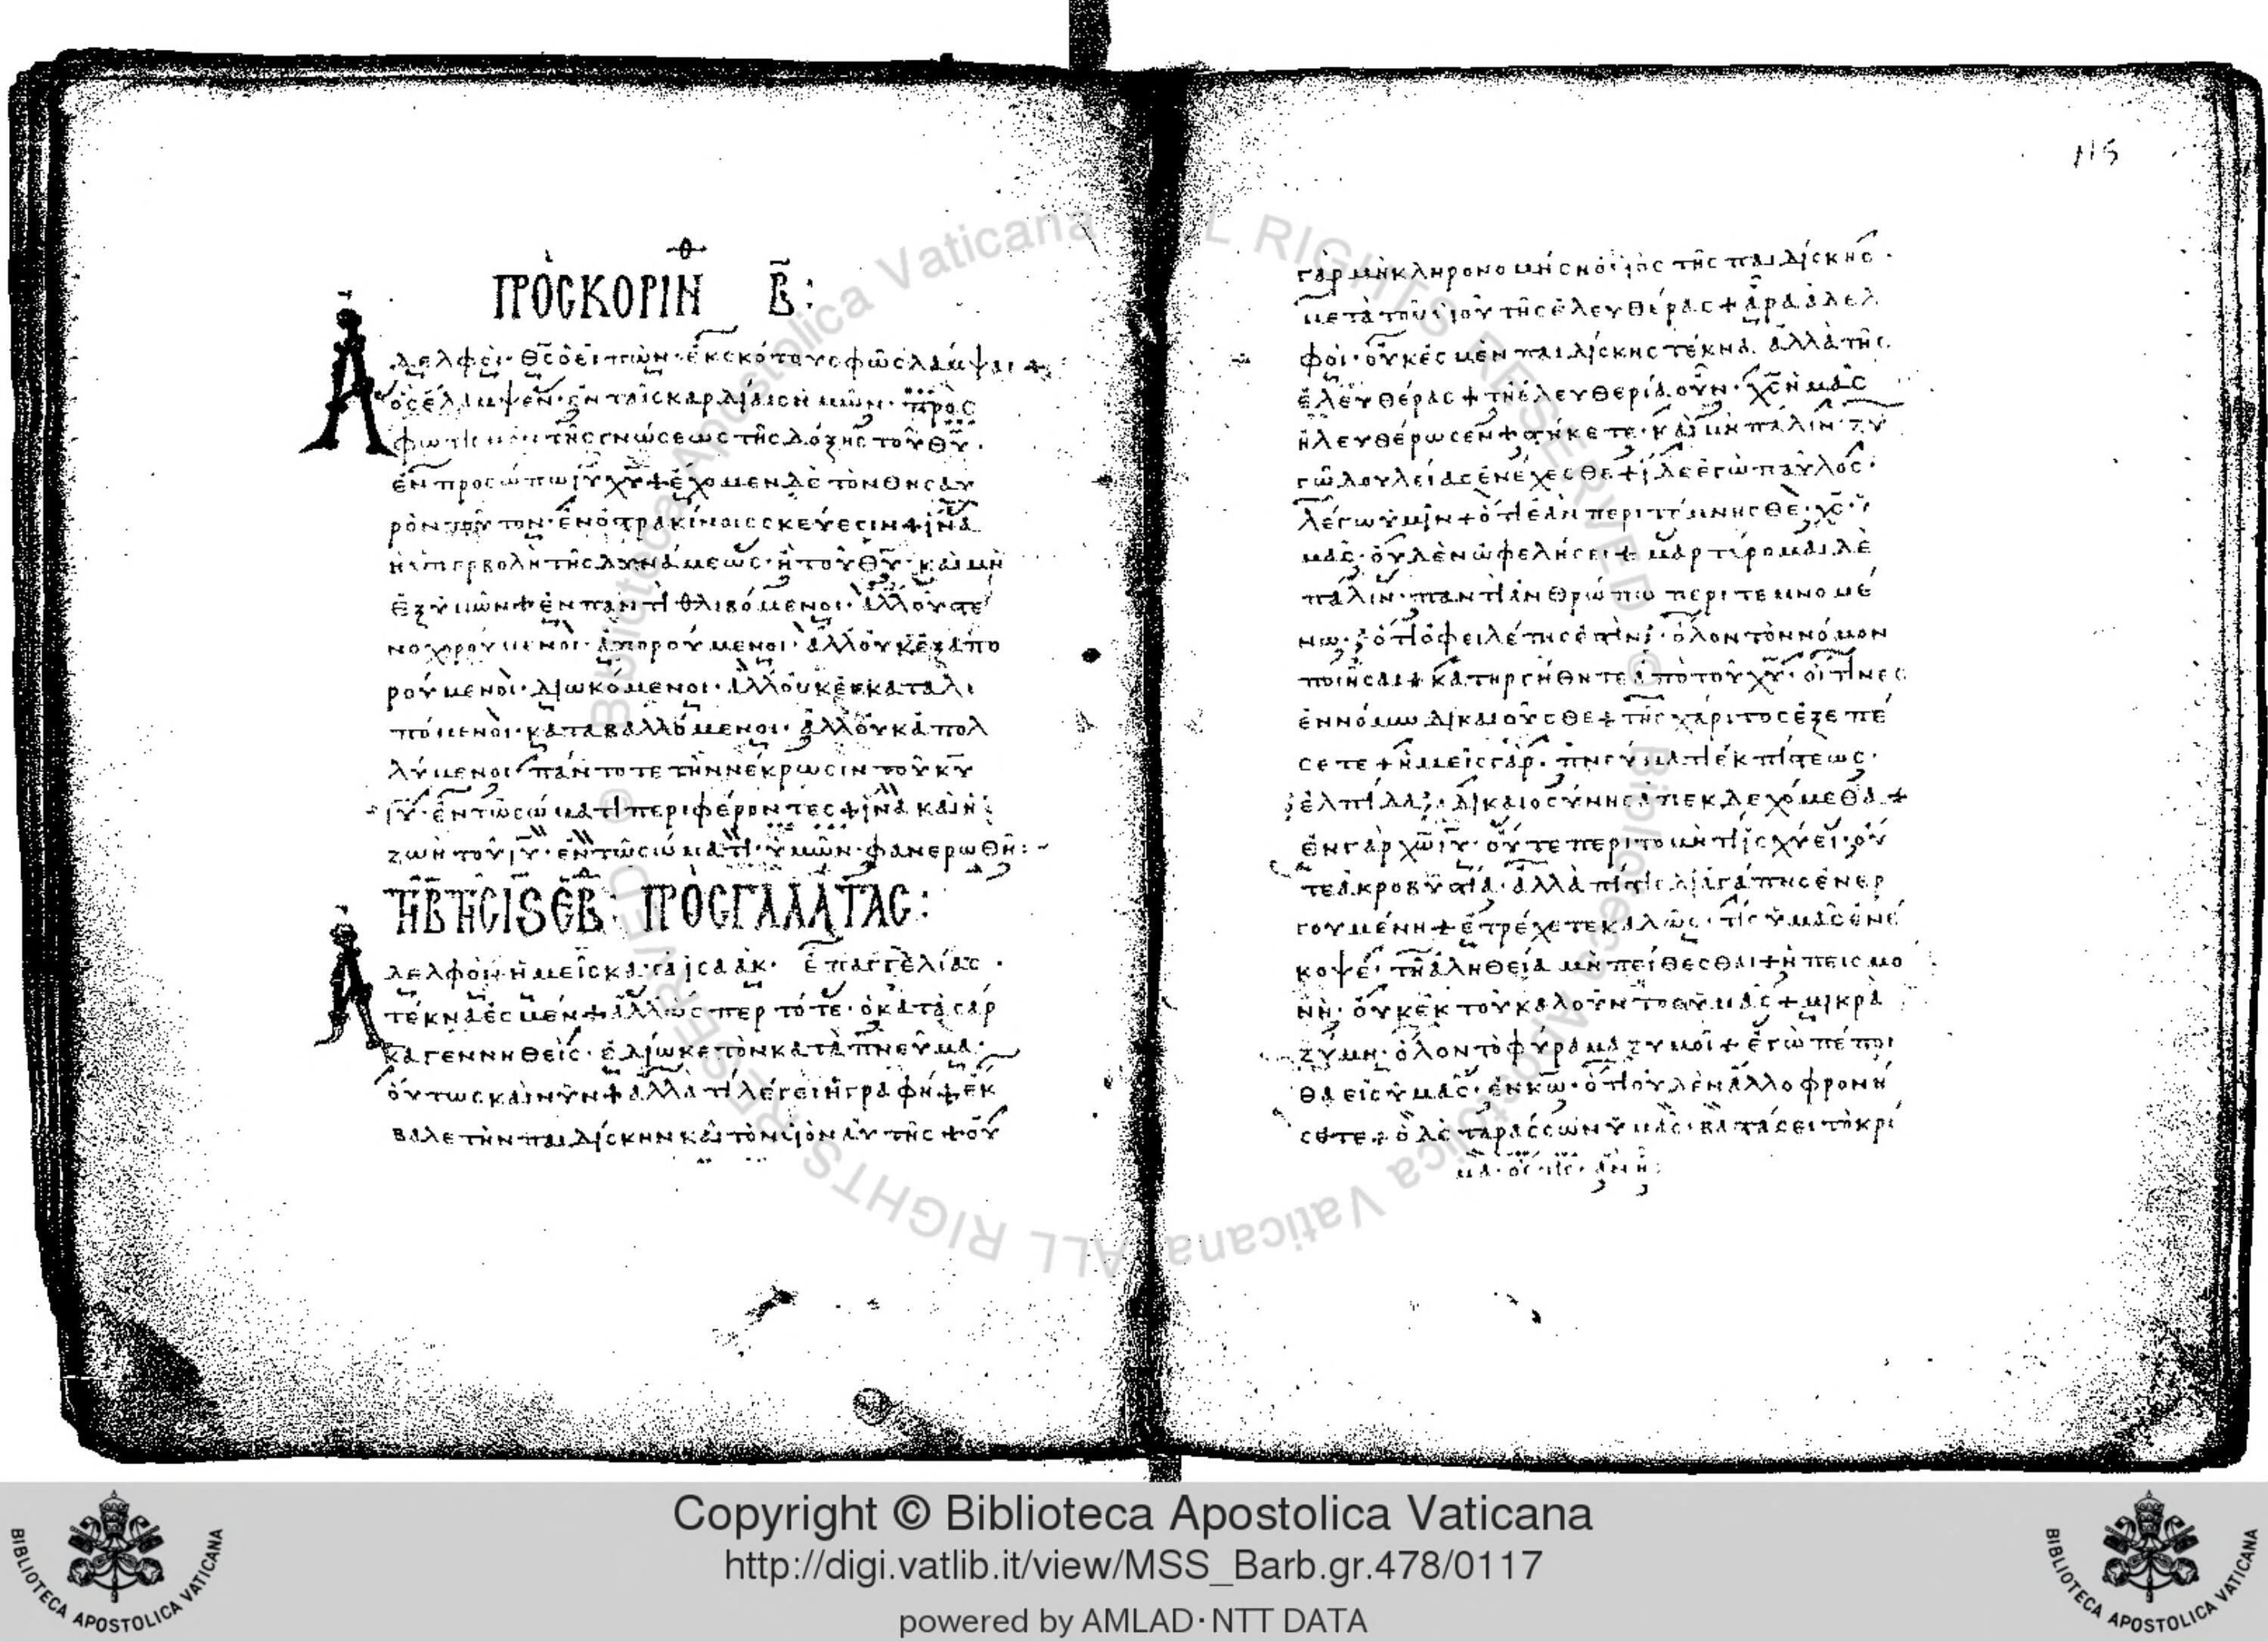 ΠΡὸCΚΟΡΙΝΘ Β̄:
Ἀδελφοὶ· θ̅ς̅ ὁ εἰπὼν· ἐκ σκότους φῶς λάμψαι +
ὃς ἔλαμψεν· ἐν ταῖς καρδίαις ἡμῶν· πρὸς
φωτισμὸν τῆς γνώσεως τῆς δόξης τοῦ θ̅υ̅·
ἐν προσώπω ι̅υ̅ χ̅υ̅ + ἔχομεν δὲ τὸν θησαυ
ρὸν τοῦτον· ἐν ὀστρακίνοις σκεύεσιν + ἵνα
ἡ ὑπερβολὴ τῆς δυνάμεως· ἦ τοῦ θ̅υ̅· καὶ μὴ
ἐξ ὑμῶν + ἐν παντὶ θλιβόμενοι· ἀλλ οὐ στε
νοχωρούμενοι· ἀπορούμενοι· ἀλλ οὐκ ἐξαπο
ρούμενοι· διωκόμενοι· ἀλλ οὐκ ἐγκαταλι
πόμενοι· καταβαλλόμενοι· ἀλλ οὐκ ἀπολ
λύμενοι· πάντοτε τὴν νέκρωσιν τοῦ κ̅υ̅
ι̅υ̅· ἐν τῶ σώματι περιφέροντες + ἵνα καὶ ἡ
ζωὴ τοῦ ι̅υ̅· ἐν τῶ σώματι· ὑμῶν· φανερωθῆ:
ΠΡὸCΓΑΛΑΤΑC:
Ἀδελφοι· ἡμεῖς κατὰ ἰσαάκ· ἐπαγγελίας·
τέκνα ἐσμέν + ἀλλ ὥσπερ τότε· ὁ κατὰ σάρ
κα γεννηθεὶς· ἐδίωκε τὸν κατὰ πνεῦμα·
οὕτως καὶ νῦν + ἀλλὰ τί λέγει ἡ γραφή + ἔκ
βαλε τὴν παιδίσκην καὶ τὸν υἱὸν αὐτῆς + οὐ
115
γὰρ μὴ κληρονομήση ὁ υἱὸς τῆς παιδίσκης·
μετὰ τοῦ υἱοῦ τῆς ἐλευθέρας + ἄρα ἀδελ
φοὶ· οὐκ ἐσμὲν παιδίσκης τέκνα ἀλλὰ τῆς
ἐλευθέρας + τῆ ἐλευθερία οὖν· χ̅ς̅ ἡμᾶς
ἠλευθέρωσεν + στήκετε· καὶ μὴ πάλιν· ζυ
γῶ δουλείας ἐνέχεσθε + ἴδε ἐγὼ παῦλος·
λέγω ὑμῖν + ὅτι ἐὰν περιτέμνησθε· χ̅ς̅ ὑ
μᾶς· οὐδὲν ὠφελήσει + μαρτύρομαι δὲ
πάλιν· παντὶ ἀνθρώπω περιτεμνομέ
νω· ὅτι ὀφειλέτης ἐστὶν· ὅλον τὸν νόμον
ποιῆσαι + κατηργήθητε ἀπὸ τοῦ χ̅υ̅· οἵτινες
ἐν νόμω δικαιοῦσθε + τῆς χάριτος ἐξεπέ
σετε + ἡμεῖς γάρ· πνεύματι ἐκ πίστεως·
ἐλπίδα· δικαιοσύνης ἀπεκδεχόμεθα +
ἐν γὰρ χ̅ω̅ ι̅υ̅· οὔτε περιτομὴ τι ἰσχύει· οὐ
τε ἀκροβυστία· ἀλλὰ πίστις δι ἀγάπης ἐνερ
γουμένη + ἐτρέχετε καλῶς· τίς ὑμᾶς ἐνέ
κοψε· τῆ ἀληθεία μὴ πείθεσθαι + ἡ πεισμο
νὴ· οὐκ ἐκ τοῦ καλοῦντος ὑμᾶς + μικρὰ
ζύμη· ὅλον τὸ φύραμα ζυμοῖ + ἐγὼ πέποι
θα εἰς ὑμᾶς· ἐν κ̅ω̅· ὅτι οὐδὲν ἄλλο φρονή
σετε + ὁ δὲ ταράσσων ὑμᾶς· βαστάσει τὸ κρί
μα· ὅστις ἂν ἦ:
Copyright © Biblioteca Apostolica Vaticana
http://digi.vatlib.it/view/MSS_Barb.gr.478/0117
powered by AMLAD·NTT DATA
BIBLIOTECA APOSTOLICA VATICANA
BIBLIOTECA APOSTOLICA VATICANA